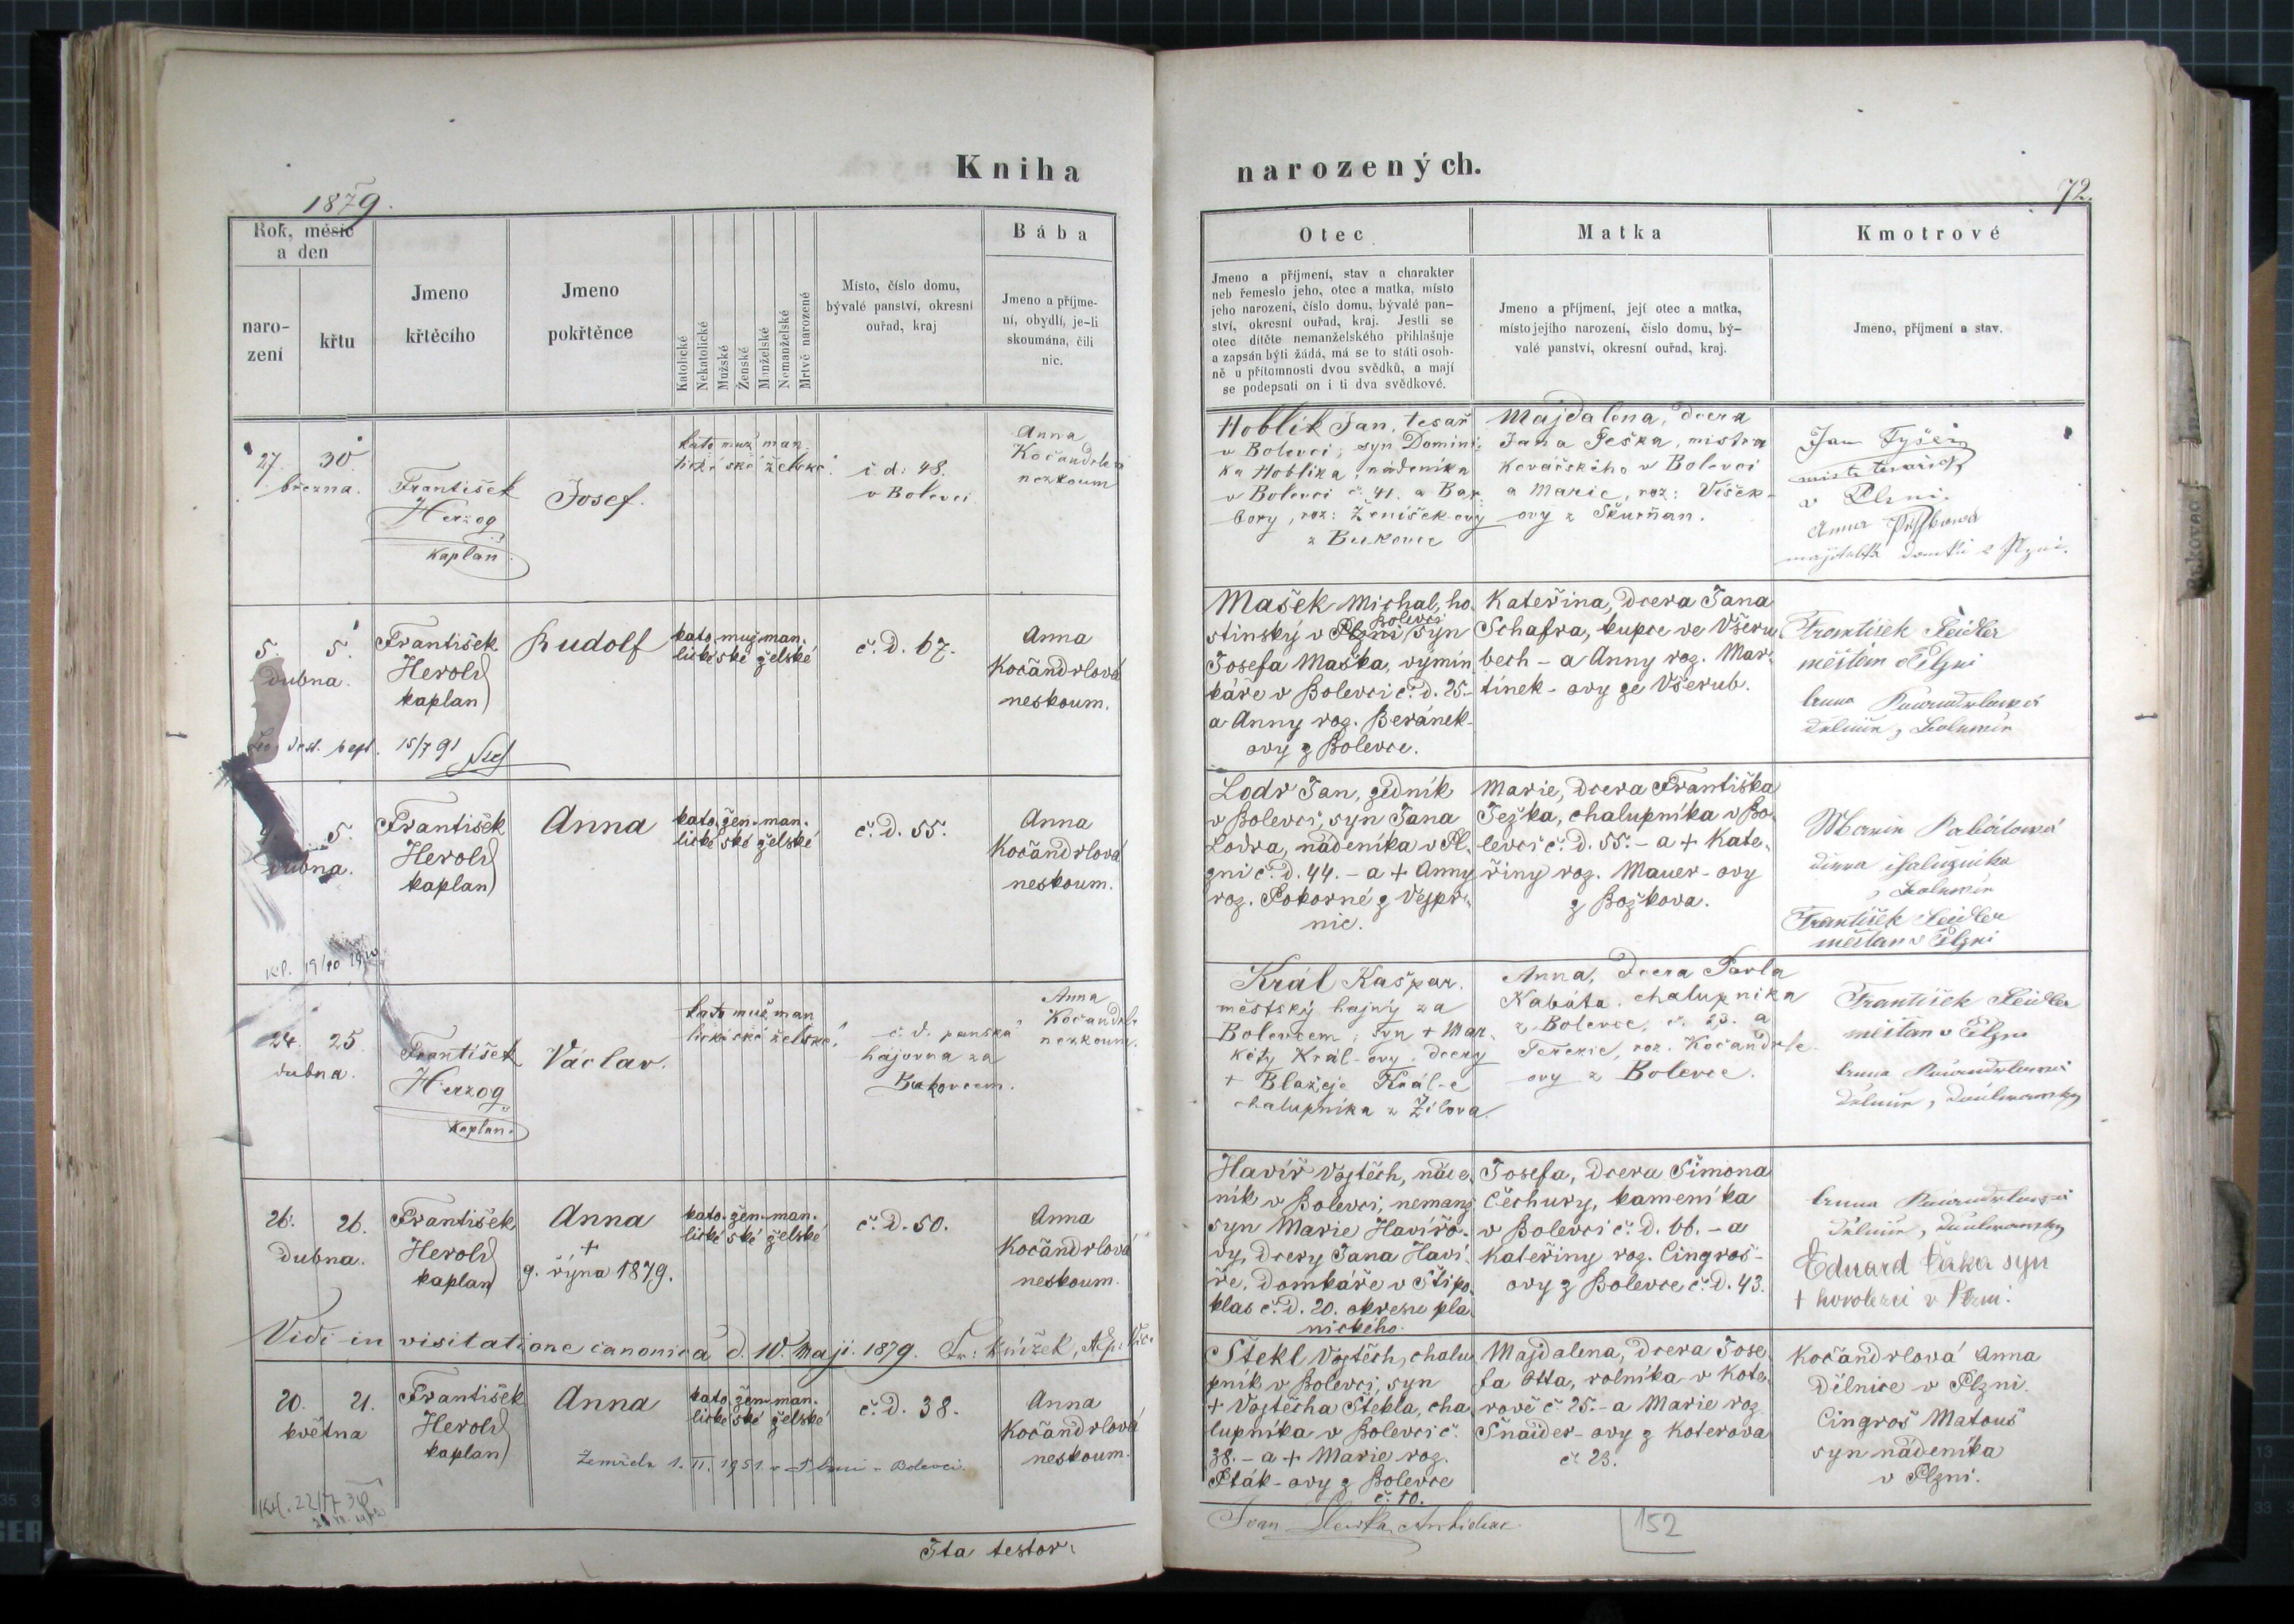 Kniha
narozených.
1879.
72.
Rok, měsíc
a den
naro-
zení
křtu
Jmeno
křtěcího
Jmeno
pokřtěnce
Katolické
Nekatolické
Mužské
Ženské
Manželské
Nemanželské
Mrtvě narozené
Místo, číslo domu,
bývalé panství, okresní
ouřad, kraj
Bába
Jmeno a příjme-
ní, obydlí, je-li
skoumána, čili
nic.
Otec
Jmeno a příjmení, stav a charakter
neb řemeslo jeho, otec a matka, místo
jeho narození, číslo domu, bývalé pan-
ství, okresní ouřad, kraj. Jestli se
otec dítěte nemanželského přihlašuje
a zapsán býti žádá, má se to státi osob-
ně u přítomnosti dvou svědků, a mají
se podepsati on i ti dva svědkové.
Matka
Jmeno a příjmení, její otec a matka,
místo jejího narození, číslo domu, bý-
valé panství, okresní ouřad, kraj.
Kmotrové
Jmeno, příjmení a stav.
27. 30.
března.
František
Herzog
kaplan
Josef.
kato muž man
lické ské želské.
č. d: 48.
v Bolevci
Anna
neskoum
Hoblík Jan, tesař
v Bolevci, syn Domini-
ka Hoblíka, nádeníka
v Bolevci č. 41. a Bar-
bory, roz: Ženíšek-ovy
z Bukovce
Majdalena, dcera
Jana Peška, mistra
kovářského v Bolevci
a Marie, roz: Víšek-
ovy z Škurňan.
Jan
v Plzni.
Anna
domku z Plzni.
5. 5.
dubna.
František
Herold
kaplan
Rudolf
kato. muž. man.
lické ské želské
č. d. 67.
Anna
Kočandrlová
neskoum.
15/7 91
Mašek Michal, ho-
stinský v Plzni Bolevci syn
Josefa Maška, výmin-
káře v Bolevci č. d. 25.-
a Anny roz. Beránek-
ovy z Bolevce.
Kateřina, dcera Jana
Schafra, kupce ve Všeru-
bech - a Anny roz. Mar-
tínek-ovy ze Všerub.
František Seidler
měštan v Plzni
5.
dubna.
František
Herold
kaplan
Anna
kato. žen. man.
lické ské želské
č. d. 55.
Anna
Kočandrlová
neskoum.
Lodr Jan, zedník
v Bolevci, syn Jana
Lodra, nádeníka v Pl-
zni č. d. 44. - a + Anny
roz. Pokorné z Vejpr-
nic.
Marie, dcera Františka
Ježka, chalupníka v Bo-
levci č. d. 55. - a + Kate-
řiny roz. Mauer-ovy
z Božkova.
František Seidler
měštan v Plzni
24. 25.
dubna.
František
Herzog
kaplan.
Václav.
kato muž man
lické ské želské.
č. d. panská
hájovna za
Bukovcem.
Anna
neskoum.
Král Kašpar.
městský hajný za
Bolevcem, syn + Mar-
kéty Král-ovy, dcery
+ Blažeje Král-e
chalupníka z Žilova.
Anna, dcera Pavla
Kabáta, chalupníka
z Bolevce, č. 23. a
Terezie, roz. Kočandrle-
ovy z Bolevce.
František Seidler
měštan v Plzni
26. 26.
dubna.
František
Herold
kaplan
Anna
+
9. října 1879.
kato. žen. man.
lické ské želské
č. d. 50.
Anna
Kočandrlová
neskoum.
Havíř Vojtěch, náde-
ník v Bolevci, nemanž.
syn Marie Havířo-
vy, dcery Jana Haví-
ře, domkáře v Štipo-
klas č. d. 20. okresu pla-
nického.
Josefa, dcera Šimona
Čechury, kameníka
v Bolevci č. d. 66. - a
Kateřiny roz. Cingroš-
ovy z Bolevce č. d. 43.
Eduard Čaka syn
Vidi in visitatione canonica d. 10. Maji. 1879.
20. 21.
května
František
Herold
kaplan
Anna
kato. žen. man.
lické ské želské
č. d. 38.
Anna
Kočandrlová
neskoum.
Zemřela 1. II. 1951. v Plzni - Bolevci.
Štekl Vojtěch, chalu-
pník v Bolevci, syn
+ Vojtěcha Štekla, cha-
lupníka v Bolevci č.
38. - a + Marie roz.
Pták-ovy z Bolevce
č. 10.
Majdalena, dcera Jose-
fa Otta, rolníka v Kote-
rově č. 25. - a Marie roz.
Šnaider-ovy z Koterova
č. 23.
Kočandrlová Anna
dělnice v Plzni.
Cingroš Matouš
syn nádeníka
v Plzni.
Ita testor:
152